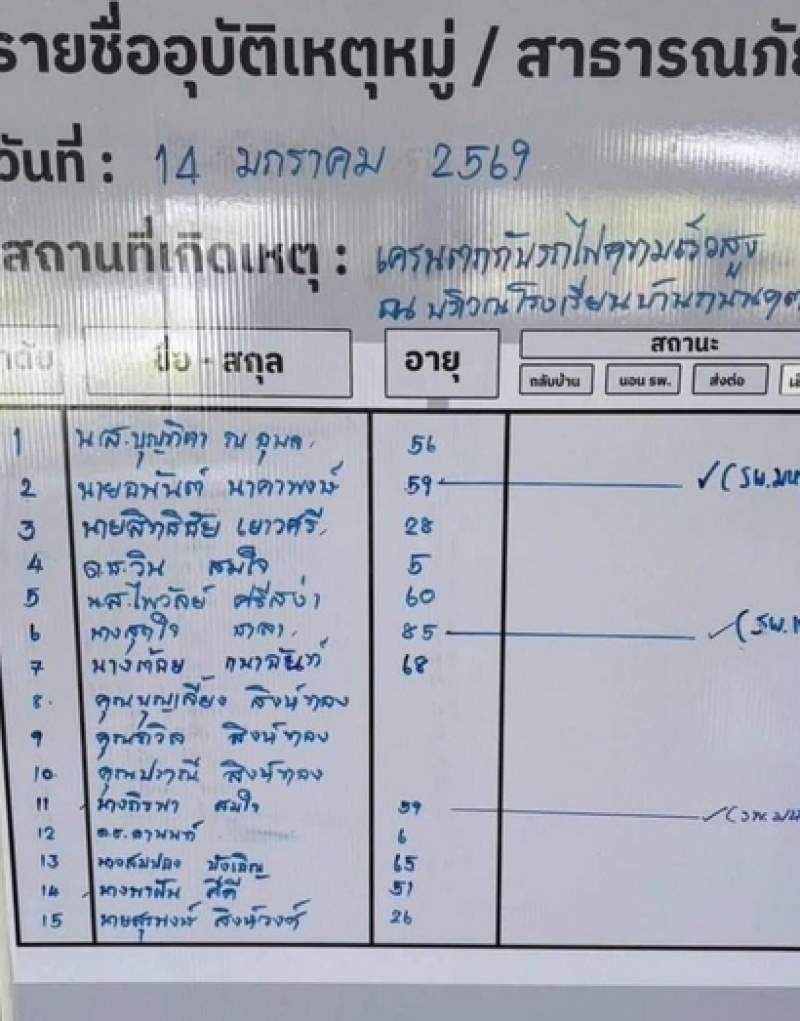 รายชื่ออุบัติเหตุหมู่ / สาธารณภัย
วันที่ : 14 มกราคม 2569
สถานที่เกิดเหตุ : เครนตกทับรถไฟความเร็วสูง
ณ บริเวณโรงเรียนบ้านถนนคด
ลำดับ ชื่อ - สกุล อายุ สถานะ
กลับบ้าน นอน รพ. ส่งต่อ
1 น.ส. ณ 56
2 นาย นาคาพงษ์ 59 ✓(รพ.มห
3 นายสิทธิชัย เยาวศรี 28
4 ด.ช.วิน สมใจ 5
5 น.ส.ไพวัลย์ ศรีสง่า 60
6 นางสุดใจ 85 ✓(รพ.
7 นาง 68
8. คุณบุญเลี้ยง สิงห์ทอง
9 คุณถวิล สิงห์ทอง
10 คุณปราณี สิงห์ทอง
11 นางถิรพา สมใจ 59 ✓(รพ.มห
12 ด.ช.อานนท์ 6
13 นางสมปอง 65
14 นางพาฝัน สีดี 51
15 นายสุรพงษ์ สิงห์วงศ์ 26